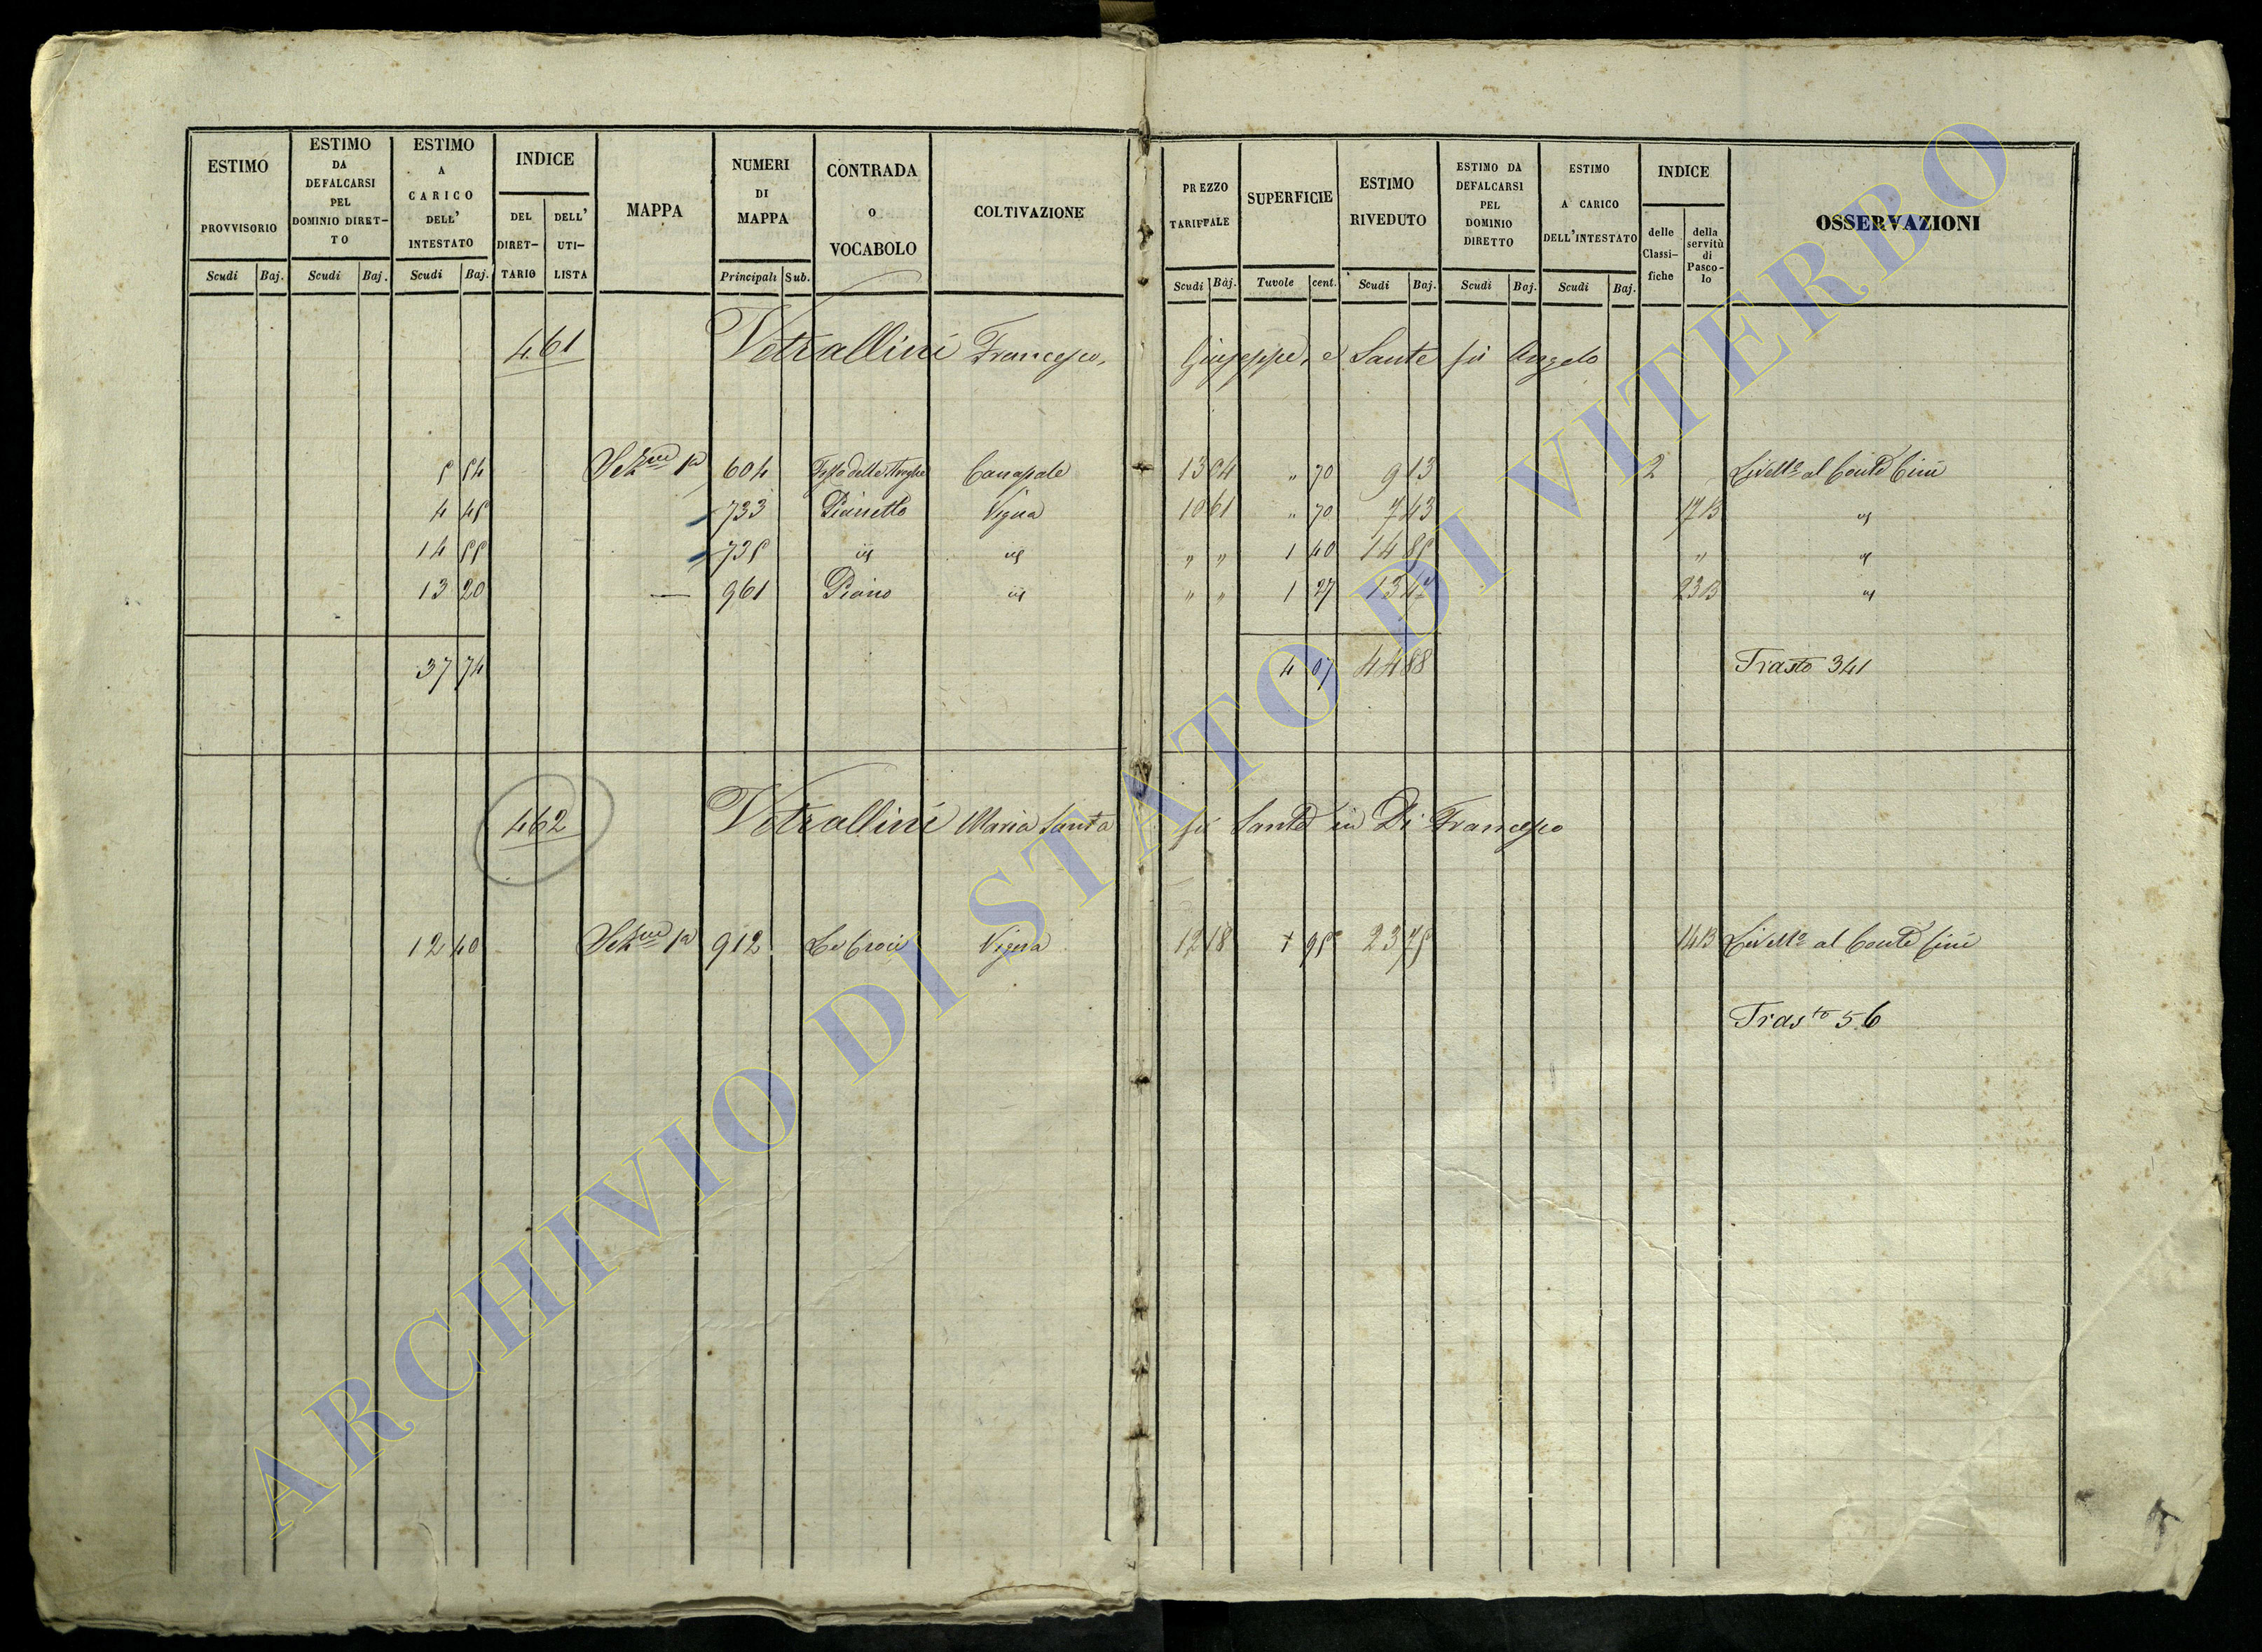 ESTIMO PROVVISORIO Scudi Baj.
ESTIMO DA DEFALCARSI PEL DOMINIO DIRET-TO Scudi Baj.
ESTIMO A CARICO DELL' INTESTATO Scudi Baj.
INDICE DEL DIRET-TARIO DELL' UTI-LISTA
MAPPA
NUMERI DI MAPPA Principali Sub.
CONTRADA O VOCABOLO
COLTIVAZIONE
PREZZO TARIFFALE Scudi Baj.
SUPERFICIE Tavole cent.
ESTIMO RIVEDUTO Scudi Baj.
ESTIMO DA DEFALCARSI PEL DOMINIO DIRETTO Scudi Baj.
ESTIMO A CARICO DELL'INTESTATO Scudi Baj.
INDICE delle Classi-fiche della servitù di Pasco-lo
OSSERVAZIONI
461 Vetrallini Francesco, Giuseppe, e Sante fù Angelo
5 54 Sezne 1a 604 Canapale 13 04 " 70 9 13 2 Livello al Conte Cini
4 45 733 Pianetto Vigna 10 61 " 70 7 43 17 B
14 55 735 " " 1 40 14 85 "
13 20 — 961 Piano " " 1 27 13 47 23 B
37 74 4 07 44 88 Trasto 341
462 Vetrallini Maria Santa fù Sante in Di Francesco
12 40 Sezne 1a 912 Le Croci Vigna 12 18 1 95 23 75 14 B Livello al Conte Cini
Trasto 56
ARCHIVIO DI STATO DI VITERBO